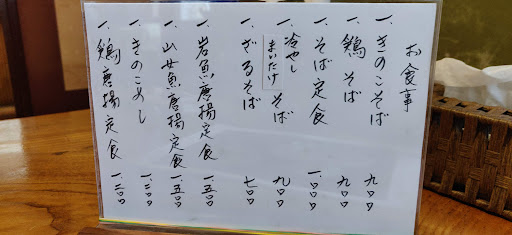 お食事
一、きのこそば 九〇〇
一、鶏そば 九〇〇
一、そば定食 一、〇〇〇
一、冷やしまいたけそば 九〇〇
一、ざるそば 七〇〇
一、岩魚唐揚定食 一、五〇〇
一、山女魚唐揚定食 一、五〇〇
一、きのこめし 一、二〇〇
一、鶏唐揚定食 一、二〇〇